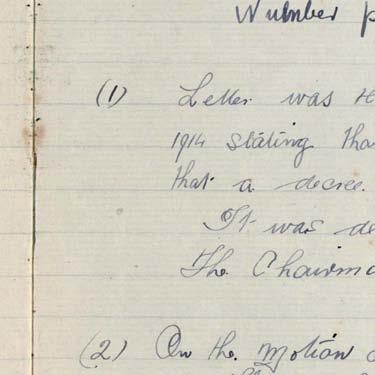 Number p
(1) Letter was
1914 stating tha
that a decree.
It was de
The Chairma
(2) On the Motion